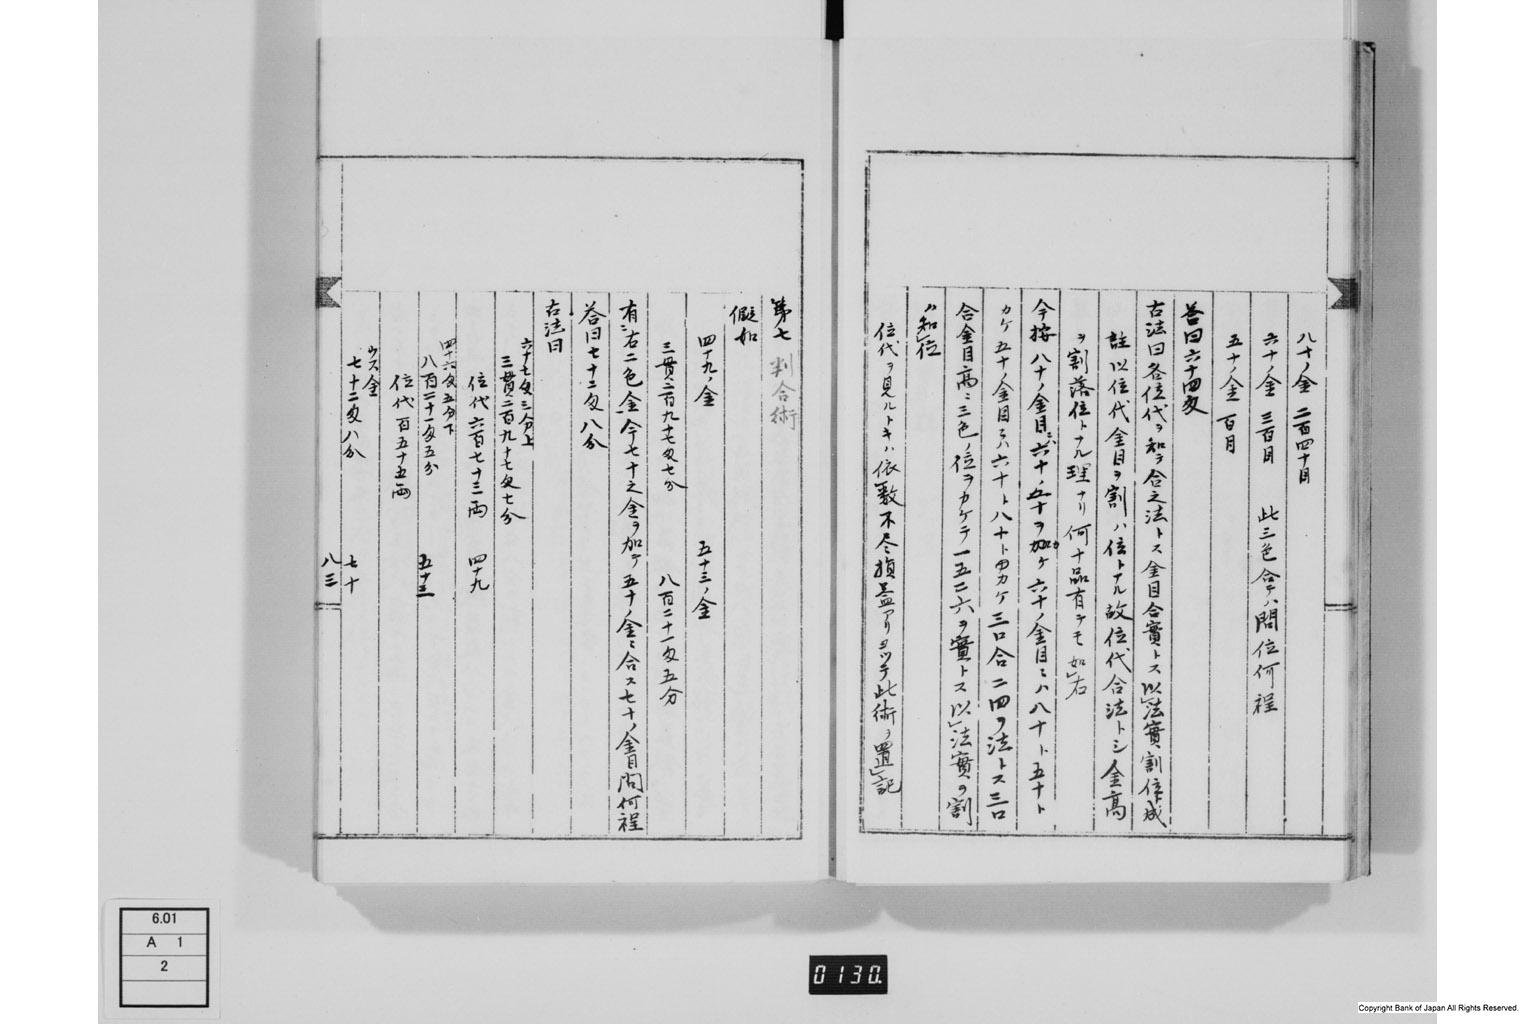 八十ノ金 二百四十目
六十ノ金 三百目 此三色合テハ問位何程
五十ノ金 百目
答曰六十四匁
古法曰各位代ヲ知テ合之法トス金目合實トス以法實割位成
註以位代金目ヲ割ハ位トナル故位代合法トシ金高
ヲ割落位トナル理ナリ何十品有テモ如右
今按八十ノ金目ニハ六十ノ五十ヲカケ六十ノ金目ニハ八十ト五十ト
カケ五十ノ金目ニハ六十ト八十トカケ三口合二四ヲ法トス三口
合金目高ニ三色ノ位ヲカケテ一五三六ヲ實トス以法實ヲ割
ハ知位
位代ヲ見ルトキハ依數不尽損益アリヨツテ此術ヲ置記
第七 判合術
假如
四十九ノ金 五十三ノ金
三貫二百九十七匁七分 八百二十一匁五分
有右二色金今七十之金ヲ加テ五十ノ金ニ合ス七十ノ金目問何程
答曰七十二匁八分
古法曰
六十七匁三分上
三貫二百九十七匁七分
位代六百七十三両 四十九
四十六匁五分下
八百二十一匁五分 五十三
位代百五十五両
ウス金
七十二匁八分 七十
八三
6.01
A 1
2
0130.
Copyright Bank of Japan All Rights Reserved.